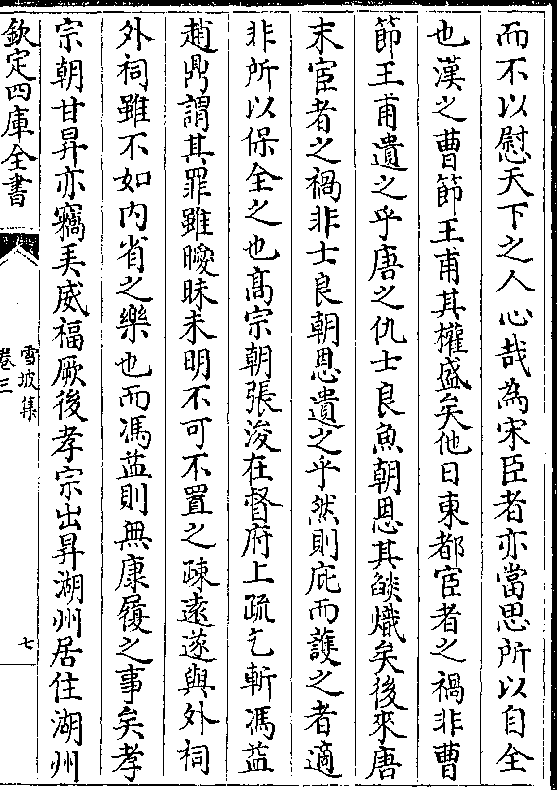 而不以慰天下之人心哉為宋臣者亦當思所以自全
也漢之曹節王甫其權盛矣他日東都宦者之禍非曹
節王甫遺之乎唐之仇士良魚朝恩其燄熾矣後來唐
末宦者之禍非士良朝恩遺之乎然則庇而護之者適
非所以保全之也高宗朝張浚在督府上疏乞斬馮益
趙鼎謂其罪雖曖昧未明不可不置之疎逺遂與外祠
外祠雖不如内省之樂也而馮益則無康履之事矣孝
宗朝甘昇亦竊弄威福厥後孝宗出昇湖州居住湖州
欽定四庫全書
雪坡集
卷三
七